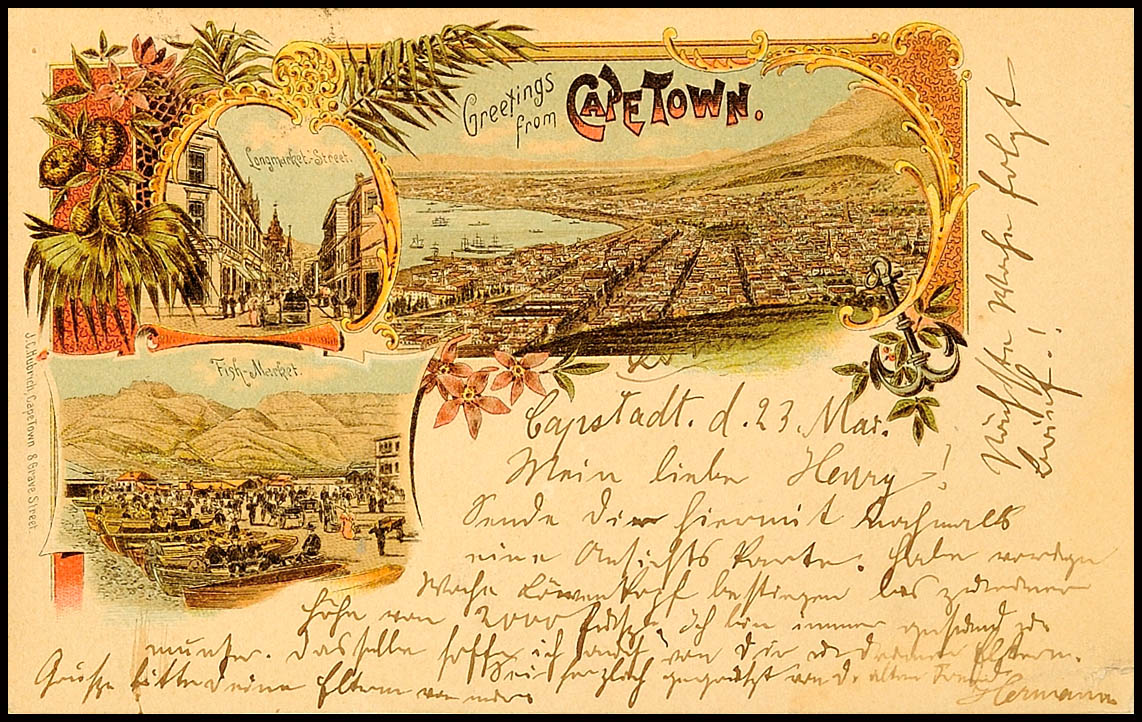 Greetings
from CAPE TOWN.
Longmarket-Street.
Fish-Market.
J.C. Hubrich, Cape Town 8 Grave Street.
Capstadt. d. 23. Mai.
Mein liebe Henry!
Sende Dir hiermit nochmals
eine Ansichts Karte. Habe vorige
Woche Löwenkopf bestiegen das
Höhe von 2000 ich bin immer gesund
munter. Dasselbe hoffe ich auch von Dir Eltern.
Sei herzlich gegrüsst von D. alten Freund
Grüsse bitte Deine Eltern von
Hermann
Nächste Woche folgt
Brief!